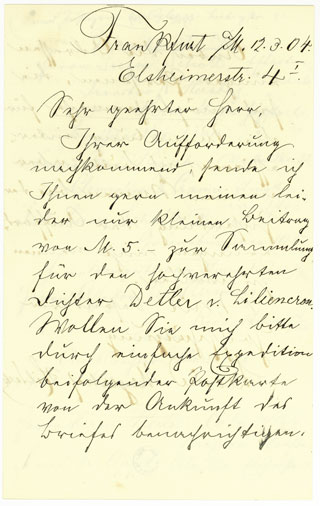 Frankfurt /M. 12. 3. 04.
Elsheimerstr. 4 I.
Sehr geehrter Herr,
Ihrer Aufforderung
nachkommend, sende ich
Ihnen gern meinen lei-
der nur kleinen Beitrag
von M. 5. – zur Sammlung
für den hochverehrten
Dichter Detlev v. Liliencron.
Wollen Sie mich bitte
durch einfache Expedition
beifolgender Postkarte
von der Ankunft des
Briefes benachrichtigen.